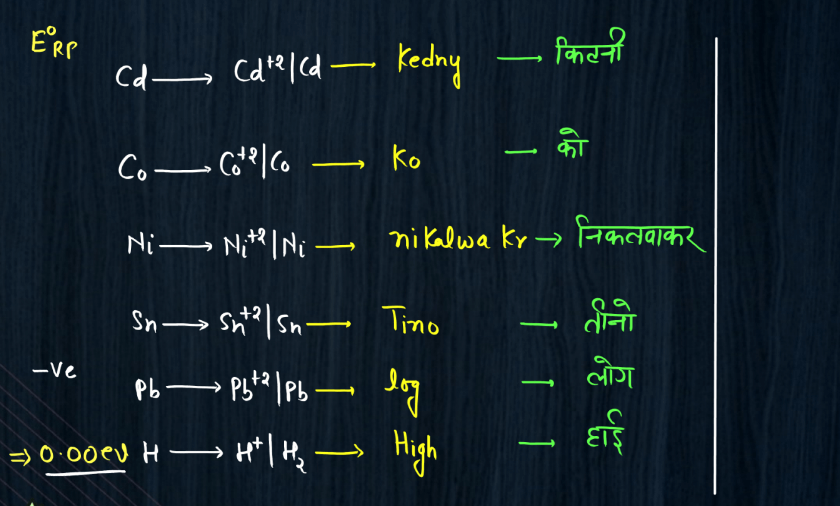 E°RP
Cd → Cd⁺² | Cd → Kedny → कितनी
Co → Co⁺² | Co → Ko → को
Ni → Ni⁺² | Ni → nikalwa kr → निकलवाकर
Sn → Sn⁺² | Sn → Tino → तीनो
-ve
Pb → Pb⁺² | Pb → log → लोग
⇒ 0.00ev H → H⁺ | H₂ → High → हाई